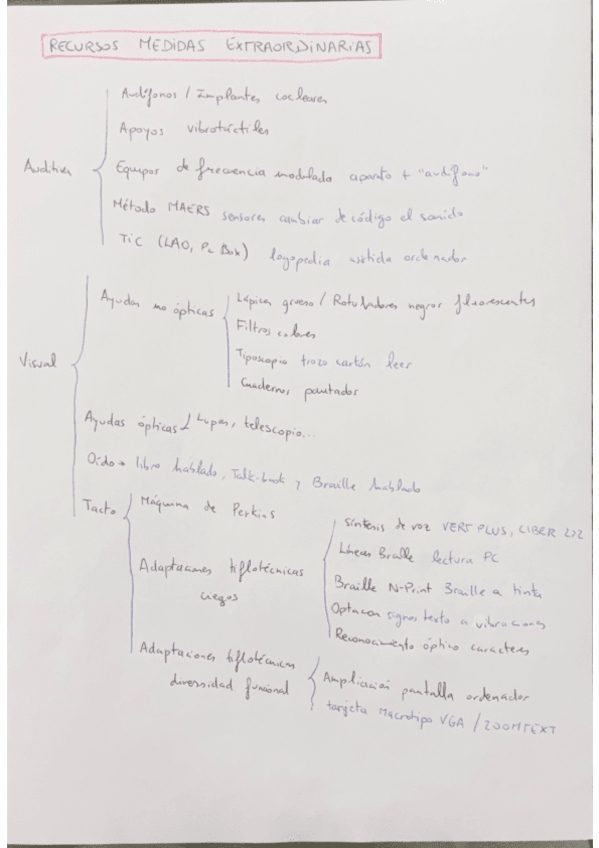 RECURSOS MEDIDAS EXTRAORDINARIAS
Audífonos / Implantes cocleares
Apoyos vibrotáctiles
Auditiva
Equipos de frecuencia modulada aparato + "audífono"
Método MAERS sensores cambiar de código el sonido
TiC (LAO, Pc Box) logopedia asistida ordenador
Visual
Ayudas no ópticas
Lápices grueso / Rotuladores negros fluorescentes
Filtros colores
Tiposcopio trozo cartón leer
Cuadernos pautados
Ayudas ópticas Lupas, telescopio...
Oído → libro hablado, Talk-back y Braille hablado
Tacto
Máquina de Perkins
Adaptaciones tiflotécnicas
ciegos
Síntesis de voz VERT PLUS, CIBER 232
Líneas Braille lectura PC
Braille N-Print Braille a tinta
Optacon signos texto a vibraciones
Reconocimiento óptico caracteres
Adaptaciones tiflotécnicas
diversidad funcional
Ampliación pantalla ordenador
tarjeta Macrotipo VGA / ZOOMTEXT